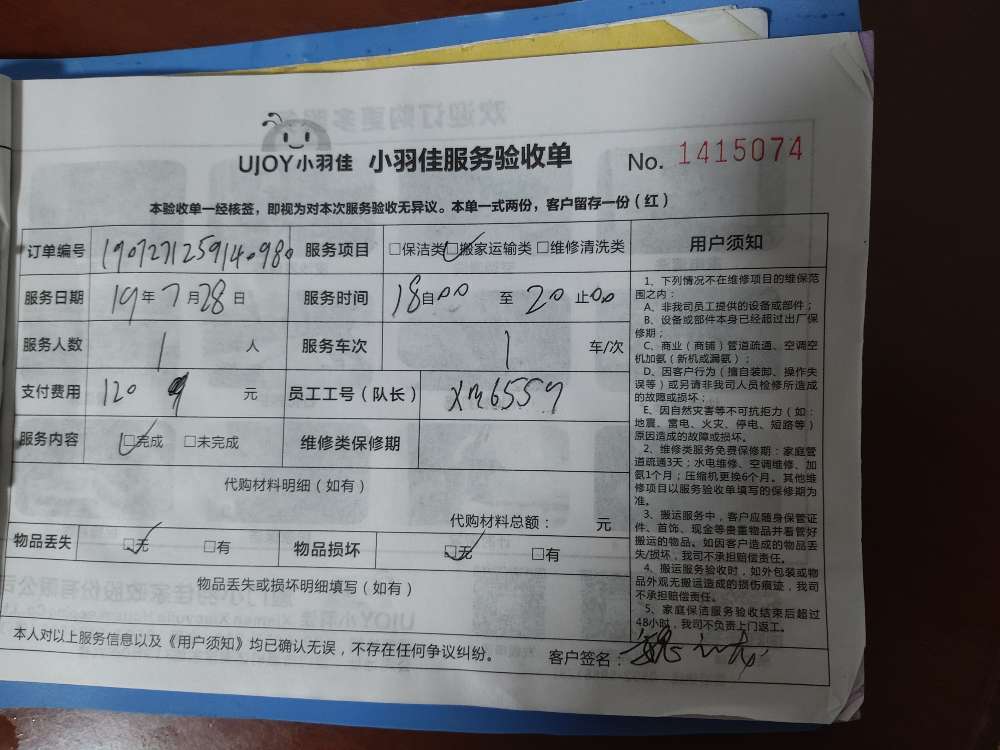 UJOY小羽佳 小羽佳服务验收单 No. 1415074
本验收单一经核签，即视为对本次服务验收无异议。本单一式两份，客户留存一份（红）
订单编号 服务项目 □保洁类 □搬家运输类 □维修清洗类
服务日期 19年7月28日 服务时间 18自00 至 20止00
服务人数 1 人 服务车次 1 车/次
支付费用 120 元 员工工号（队长） XM6557
服务内容 □完成 □未完成 维修类保修期
代购材料明细（如有）
代购材料总额： 元
物品丢失 □无 □有 物品损坏 □无 □有
物品丢失或损坏明细填写（如有）
本人对以上服务信息以及《用户须知》均已确认无误，不存在任何争议纠纷。 客户签名：
用户须知
1、下列情况不在维修项目的维保范
围之内：
A、非我司员工提供的设备或部件；
B、设备或部件本身已经超过出厂保
修期；
C、商业（商铺）管道疏通、空调空
机加氨（新机或漏氨）；
D、因客户行为（擅自装卸、操作失
误等）或另请非我司人员检修所造成
的故障或损坏；
E、因自然灾害等不可抗拒力（如：
地震、雷电、火灾、停电、短路等）
原因造成的故障或损坏。
2、维修类服务免费保修期：家庭管
道疏通3天；水电维修、空调维修、加
氨1个月；压缩机更换6个月。其他维
修项目以服务验收单填写的保修期为
准。
3、搬运服务中，客户应随身保管证
件、首饰、现金等贵重物品并看管好
搬运的物品。如因客户造成的物品丢
失/损坏，我司不承担赔偿责任。
4、搬运服务验收时，如外包装或物
品外观无搬运造成的损伤痕迹，我司
不承担赔偿责任。
5、家庭保洁服务验收结束后超过
48小时，我司不负责上门返工。